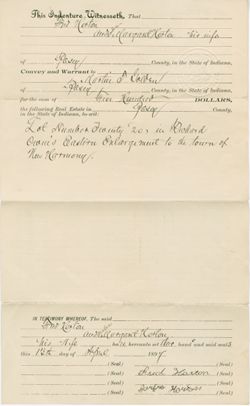 This Indenture Witnesseth, That
and Margaret his wife
of Posey County, in the State of Indiana,
Convey and Warrant to Martin T. Golden
of Posey County, in the State of Indiana,
for the sum of Hundred DOLLARS,
the following Real Estate in Posey County,
in the State of Indiana, to wit:
Lot Number Twenty 20 in Richard
Owen's Eastern Enlargement to the town of
New Harmony.
IN TESTIMONY WHEREOF, The said
and Margaret
his Wife have hereunto set their hand and seal s
this 13th day of April 189
(Seal) (Seal)
(Seal) (Seal)
(Seal) (Seal)
(Seal) (Seal)